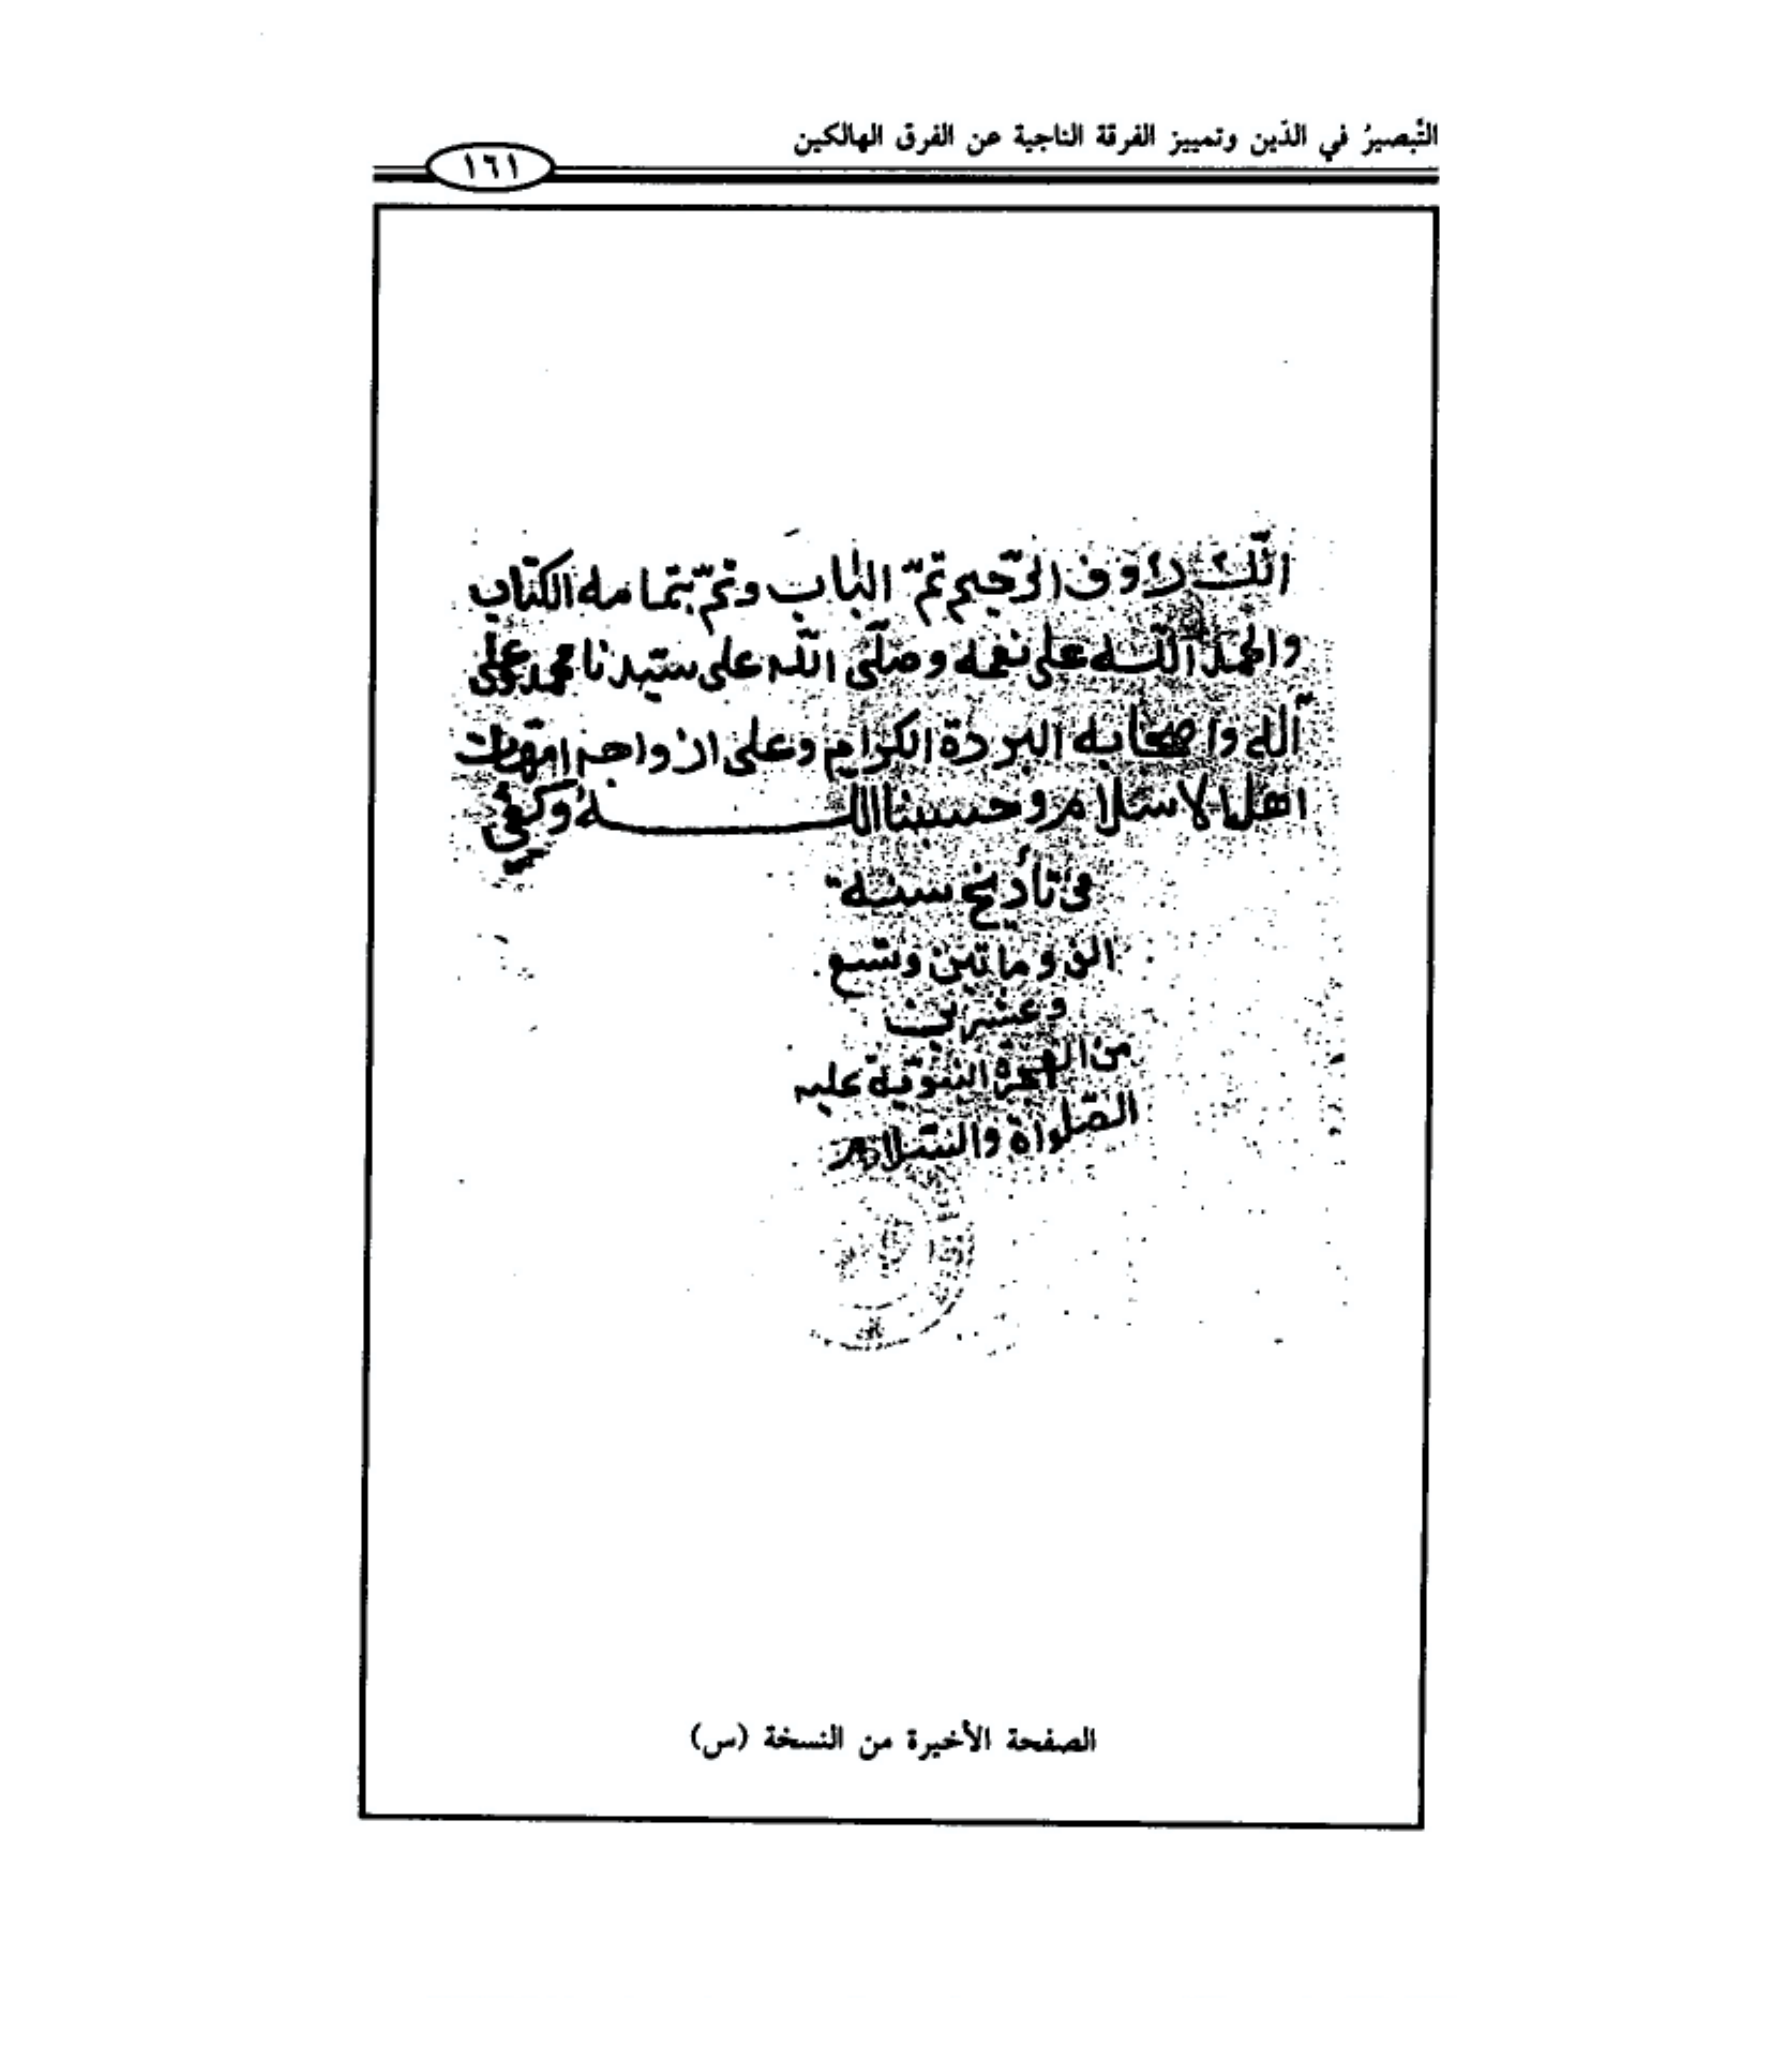 التَّبصيرُ في الدّين وتمييز الفرقة الناجية عن الفرق الهالكين
١٦١
انّك رؤوف الرّحيم تمّ الباب وتمّ بتمامه الكتاب
والحمد اللّه على نعمه وصلّى اللّه على سيّدنا محمد وعلى
آله واصحابه البررة الكرام وعلى ازواجه امّهات
اهل الاسلام وحسبنا اللـــــه وكفى
فى تأريخ سنة
الف وماتين وتسع
وعشرين
من الهجرة النبويّة عليه
الصّلواة والسّلام
الصفحة الأخيرة من النسخة (س)